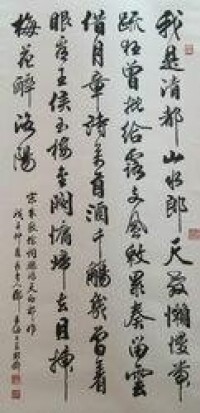 我是清都山水郎天教懶慢帶
疏狂曾批給露支風敕累奏留雲
借月章詩萬首酒千觴幾曾著
眼看王侯玉樓金闕慵歸去且插
梅花醉洛陽
宋朱敦儒詞鷓鴣天西都作
戊子